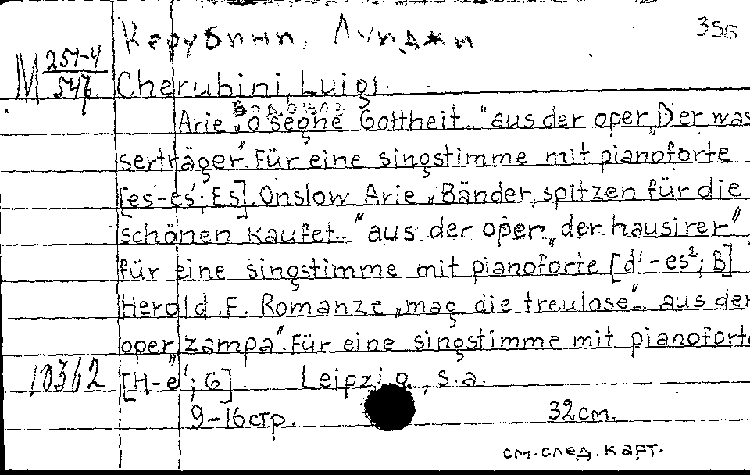 356
Керубини, Луиджи
М 251-4/547
Cherubini, Luigi.
Arie „O segne Gottheit.." aus der oper „Der was
serträger". Für eine singstimme mit pianoforte
[es-es'; Es]. Onslow Arie „Bänder, spitzen für die
schönen kaufet.." aus der oper „der hausirer"
für eine singstimme mit pianoforte [d'-es²; B]
Herold F. Romanze „mag die treulose".. aus der
oper „zampa". Für eine singstimme mit pianoforte
10362 [H-e'; G] Leipzig, s.a.
9-16 стр. 32 см.
см. след. карт.